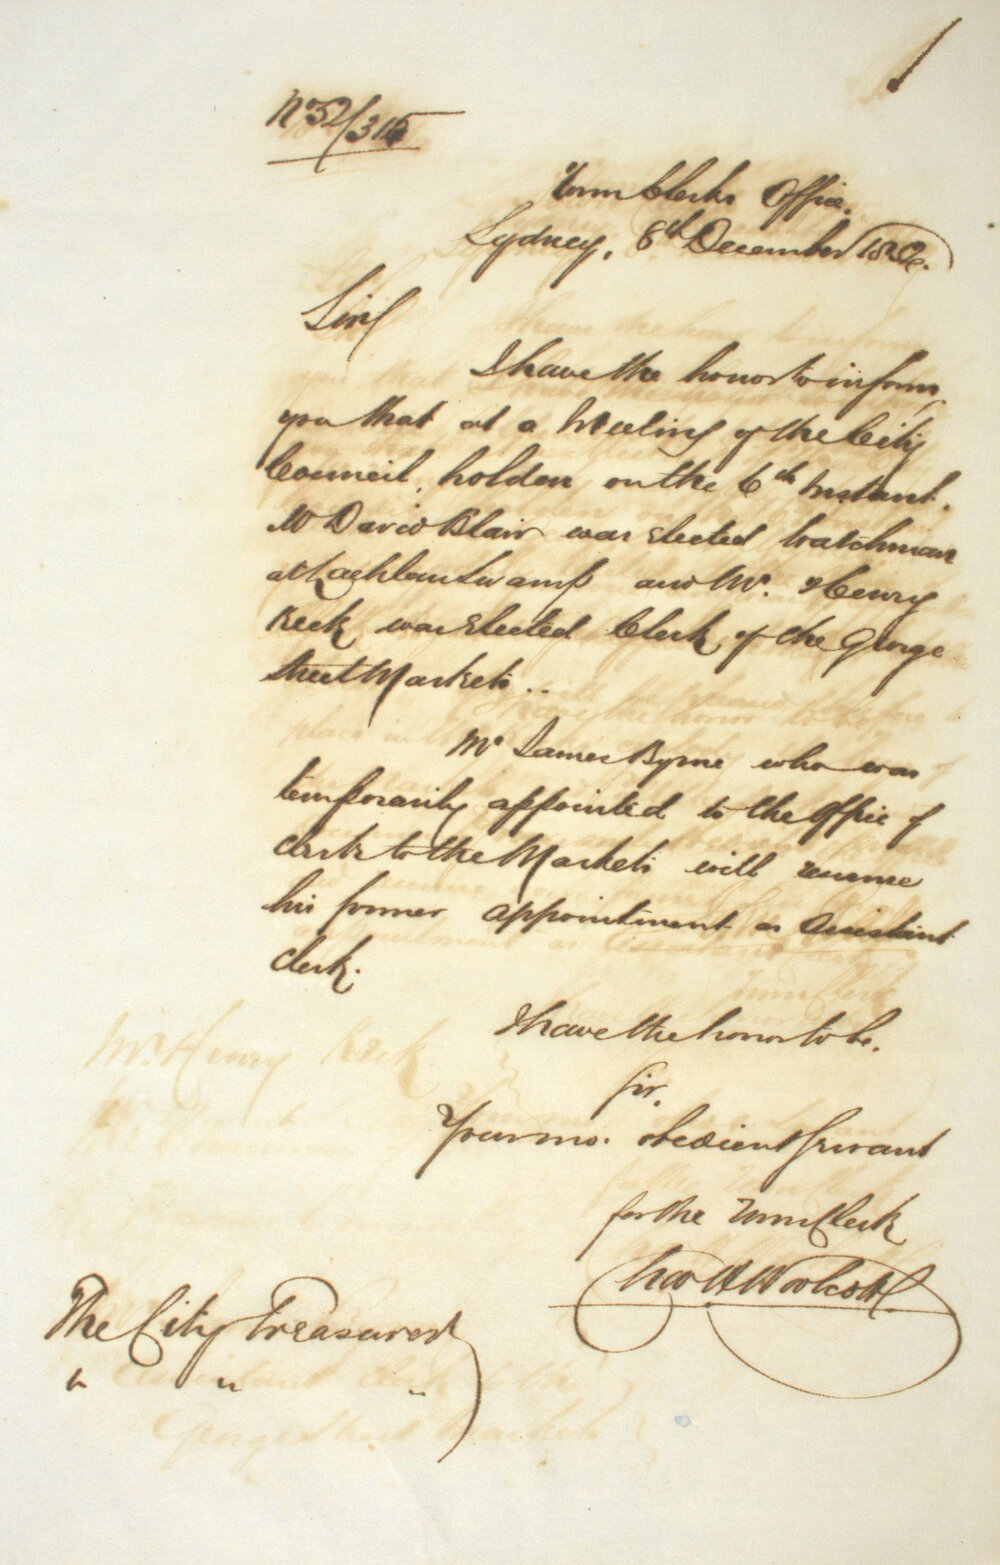 No 52/315
Town Clerks Office.
Sydney, 8th December 1852.
Sir
I have the honor to inform
you that at a Meeting of the City
Council, holden on the 6th Instant.
Mr David Blair was elected Watchman
at Lachlan Swamp and Mr. Henry
Keck was Elected Clerk of the George
Street Markets..
Mr James Byrne who was
temporarily appointed to the Office of
Clerk to the Markets will resume
his former appointment as Assistant
Clerk.
I have the honor to be.
Sir.
Your mo. obedient Servant
for the Town Clerk
Chas H Woolcott
The City Treasurer
" " "
Mr. Henry Keck
Assistant Clerk to the
George Street Markets